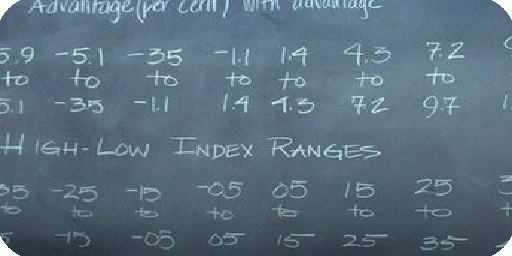 Advantage (per cent) with advantage
5.9 -5.1 -35 -1.1 1.4 4.3 7.2
to to to to to to to
5.1 -35 -1.1 1.4 4.3 7.2 9.7
HIGH-LOW INDEX RANGES
35 -25 -15 -05 05 15 25
to to to to to to to
-15 -05 05 15 25 35